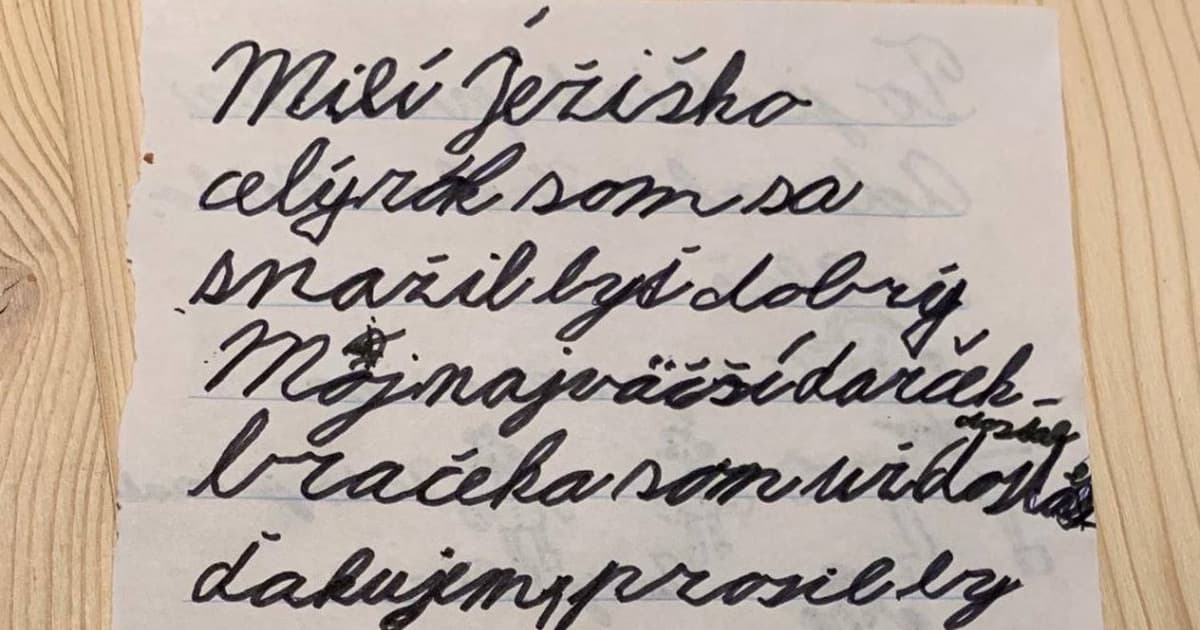 Milí Ježiško
celý rok som sa
snažil byť dobrý
Môj najväčší darček -
bračeka som už dostal
ďakujem, prosil by